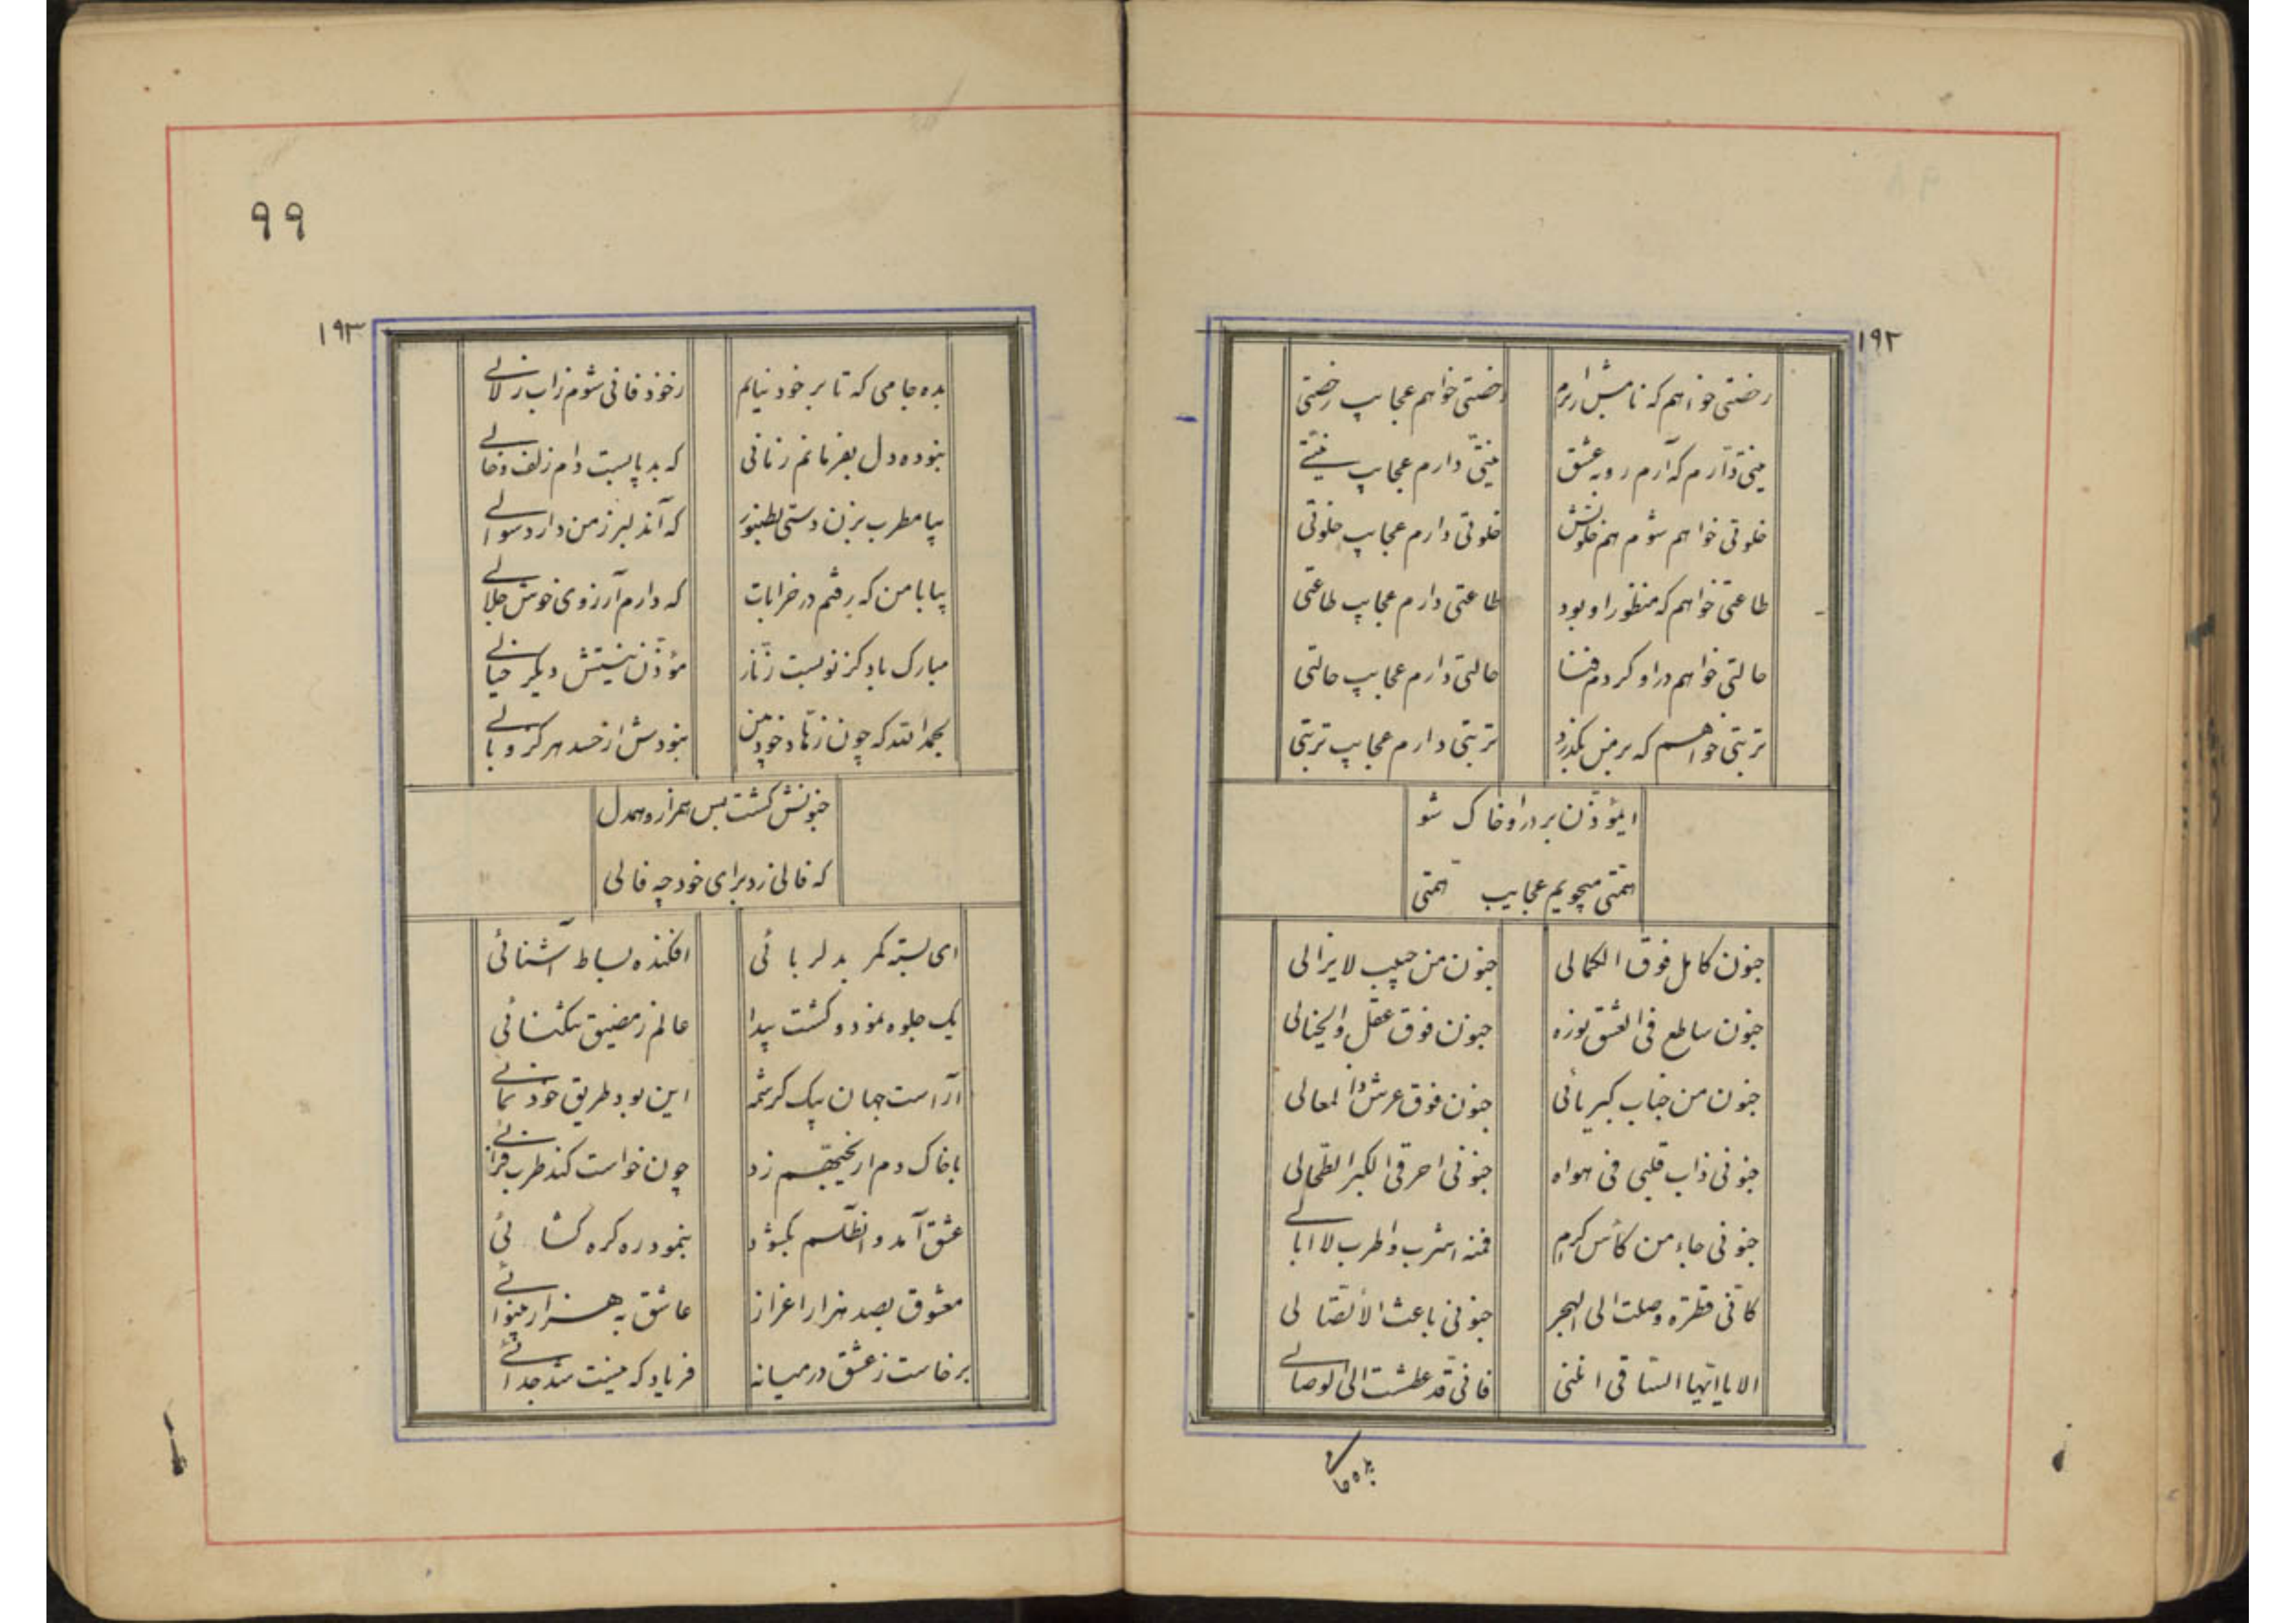 ۱۹۲
رخصتی خواهم که نامش را برم
رخصتی خواهم عجایب رخصتی
نیتی دارم که آرم رو به عشق
نیتی دارم عجایب نیتے
خلوتی خواهم شوم هم خلوتش
خلوتی دارم عجایب خلوتی
طاعتی خواهم که منظور او بود
طاعتی دارم عجایب طاعتی
حالتی خواهم در او کردم فنا
حالتی دارم عجایب حالتی
تربتی خواهم که بر من بگذرد
تربتی دارم عجایب تربتی
ایمؤذّن بر در او خاک شو
همّتی میجویم عجایب همّتی
جنون کامل فوق الکمالی
جنون من حبیب لایزالی
جنون ساطع فی العشق نوره
جنون فوق عقل والخیالی
جنون من جناب کبریائی
جنون فوق عرش المعالی
جنونی ذاب قلبی فی هواه
جنونی احرقی الکبر
جنونی جاء من کأس کرم
فمنه اشرب واطرب لا ابالے
کانّی قطرة وصلت الی البحر
جنونی باعث الأتصّالی
الا یا ایّها السّاقی اغثنی
فانّی قد عطشت الی الوصالے
بده جا
۹۹
۱۹۳
بده جامی که تا بر خود نیایم
زخود فانی شوم زاب زلالے
نبوده دل بفرمانم زمانی
که بد پابست دام زلف و خالے
بیا مطرب بزن دستی بطنبور
که آندلبر زمن دارد سوالے
بیا با من که رفتم در خرابات
که دارم آرزوی خوش جلالے
مبارک باد کز نو بست زنّار
مؤذّن نیستش دیگر خیالے
بحمد الله که چون زهّاد خودبین
نبودش از حسد هرگز وبالے
جنونش گشت بس همراز و همدل
که فالی زد برای خود چه فالی
ای بسته کمر بدلربائی
افکنده بساط آشنائی
یک جلوه نمود و گشت پیدا
عالم ز مضیق تنگنائی
آراست جهان بیک کرشمه
این بود طریق خود نمائے
با خاک دم از نخت هم زد
چون خواست کند طرب فزائے
عشق آمد و انطلسم بگشود
بنمود ره گره گشائی
معشوق بصد هزار اعزاز
عاشق به هزار بینوائے
برخاست ز عشق در میانه
فریاد که نیست شد جدائے